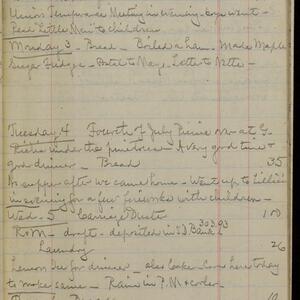 Union Temperance Meeting in evening - boys went -
Read Little Men to children
Monday 3 - Bread - Boiled a ham - Made Maple
Sugar Fudge - Hotel to May - Letter to Nette -
Tuesday 4 Fourth of July Picnic at G.
under the pine trees - A very good time &
good dinner - Bread 35
No supper after we came home - Went up to Lillie's
in evening for a few fireworks with children -
Wed - 5 Carriage Duster 1.00
Rom - draft - deposited in Bank 303.93
Laundry 26
Lemon Ice for dinner - also cooler. Came here today
to make some - Rain in P.M. & cooler